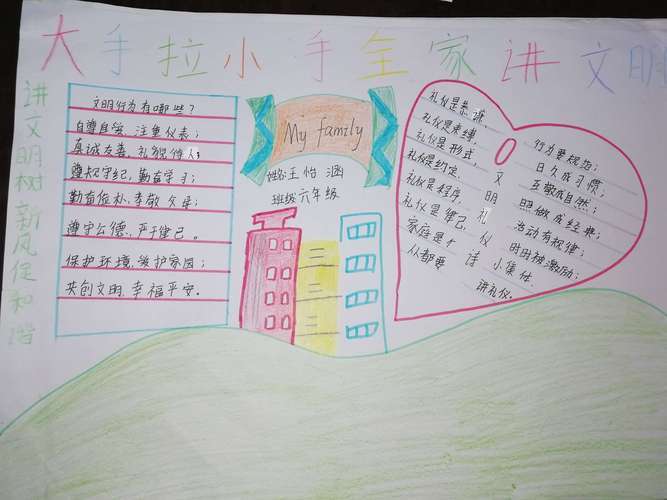 大手拉小手全家讲文明
讲文明树新风促和谐
文明行为有哪些?
自尊自爱,注重仪表;
真诚友善,礼貌待人;
遵规守纪,勤奋学习;
勤奋俭朴,孝敬父母;
遵守公德,严于律己。
保护环境,爱护家园;
共创文明,幸福平安。
My family
姓名:王怡涵
班级:六年级
文明礼仪诗
礼仪是恭谦,
礼仪是束缚,
礼仪是形式,
礼仪是约定,
礼仪是程序,
礼仪是律己,
家庭是个小集体
从都要讲礼仪。
行为要规范;
日久成习惯;
互敬成自然;
照做成经典;
活动有规律;
时时被激励;